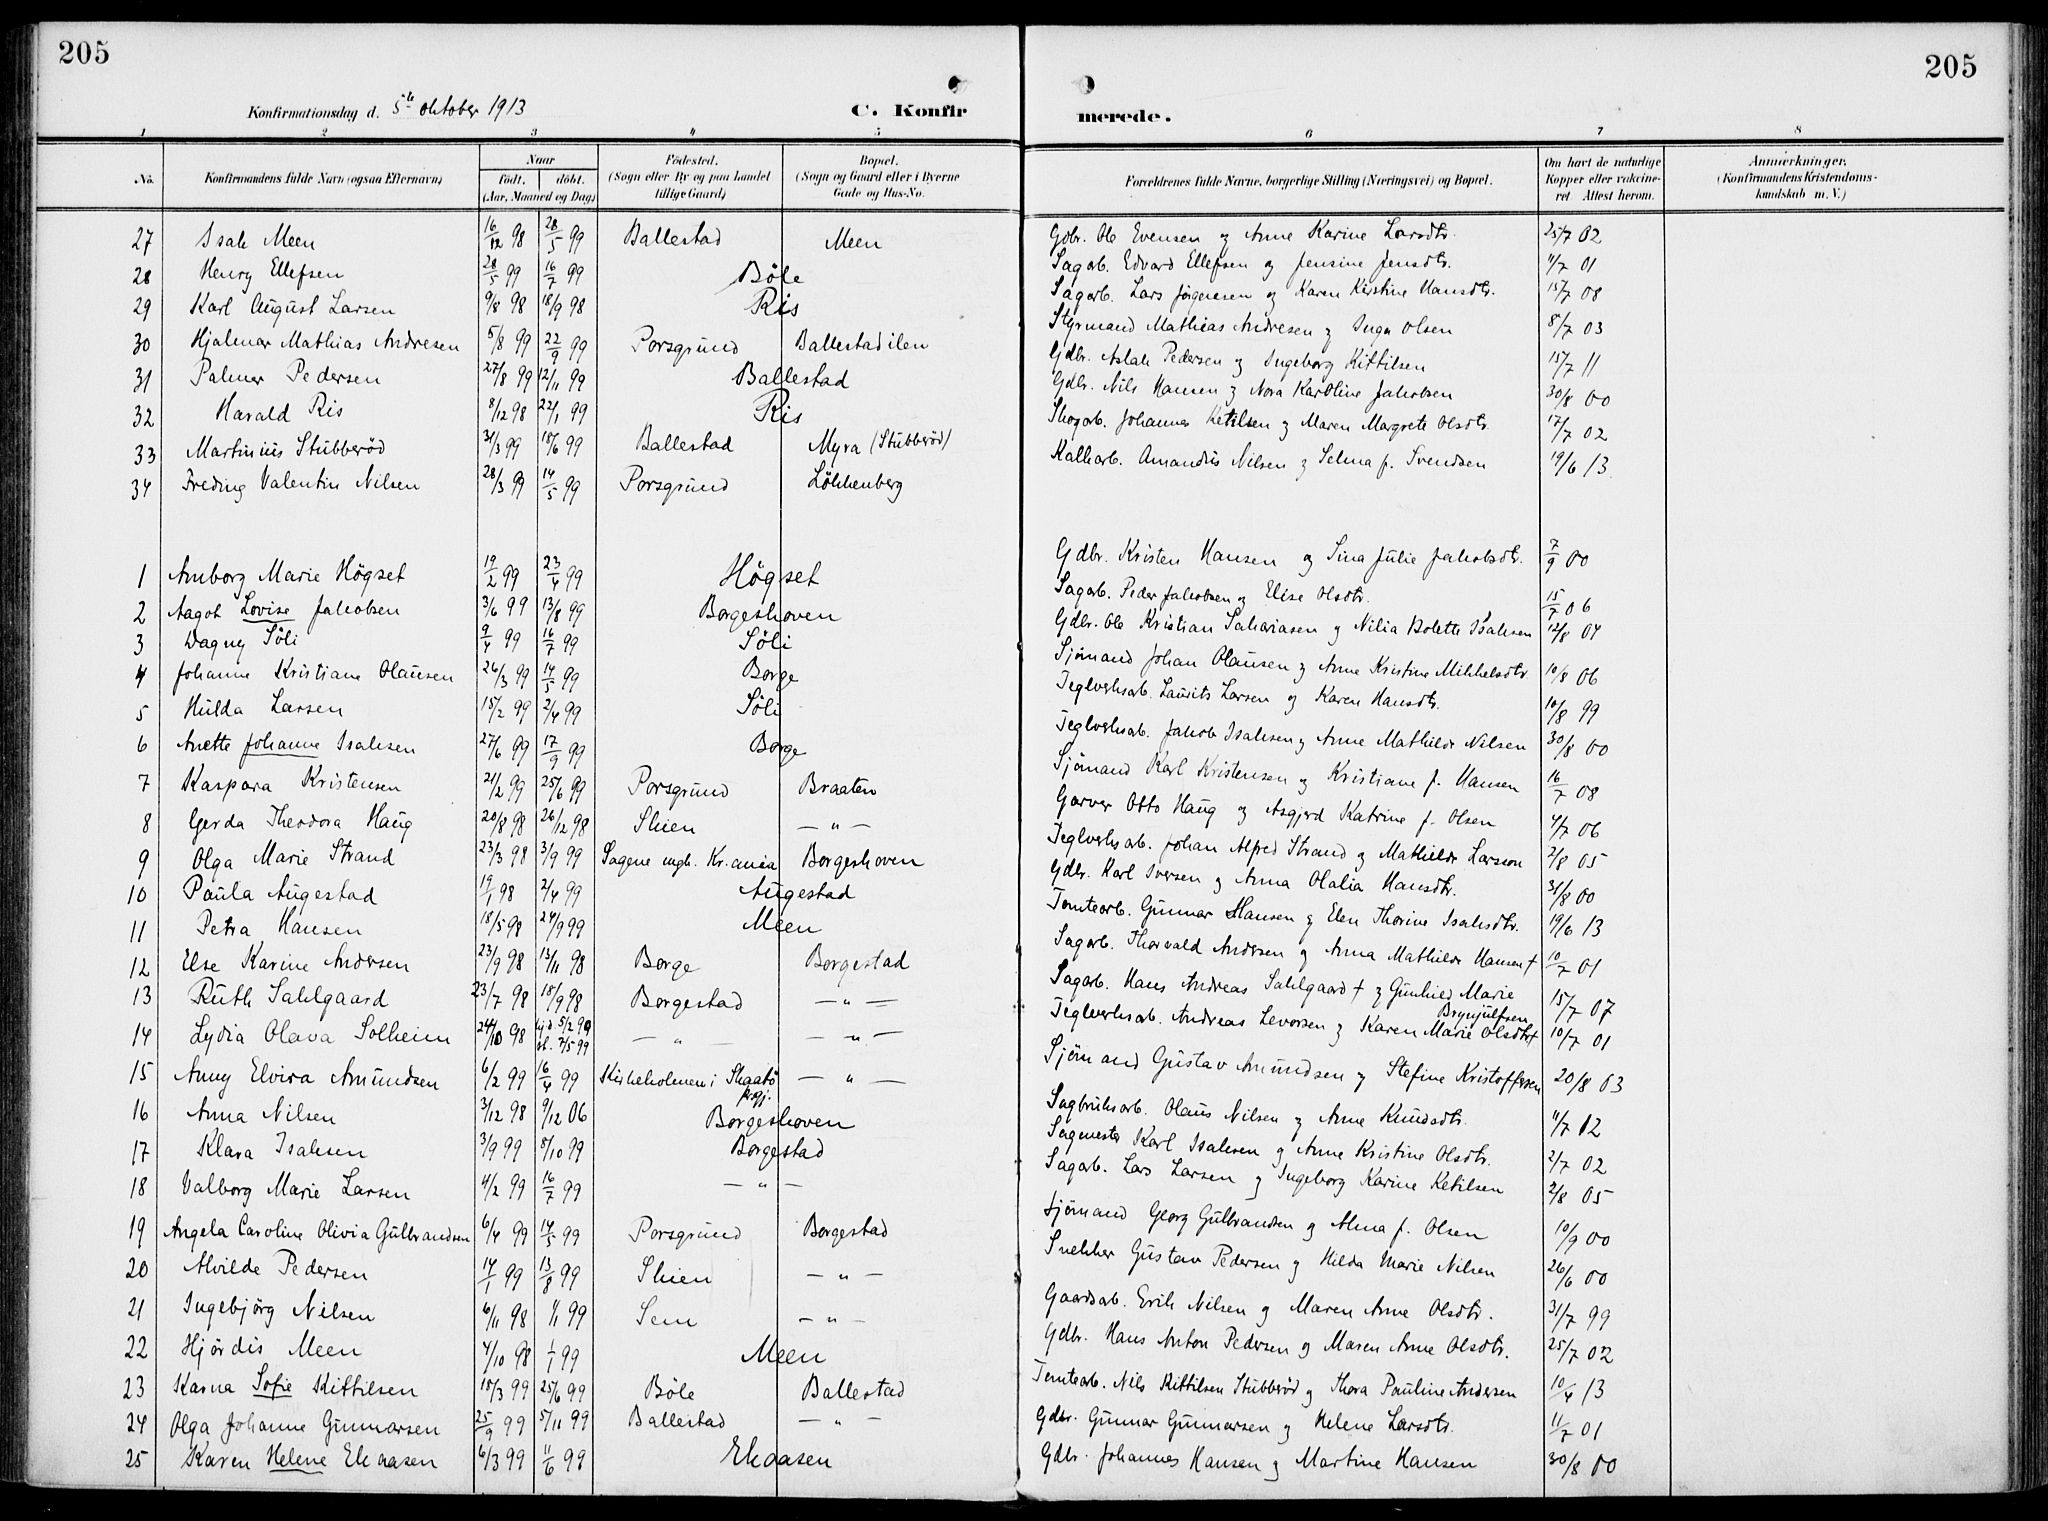 205 205
Konfirmationsdag d. 5te oktober 1913 C. Konfirmerede.
1 2 3 4 5 6 7 8
No. Konfirmandens fulde Navn (ogsaa Efternavn) Naar født. døbt. (Aar, Maaned og Dag) Födested. (Sogn eller By og paa Landet tillige Gaard) Bopæl. (Sogn og Gaard eller i Byerne Gade og Hus-No. Forældrenes fulde Navne, borgerlige Stilling (Næringsvei) og Bopæl. Om havt de naturlige Kopper eller vakcineret Attest herom. Anmærkninger. (Konfirmandens Kristendomskundskab m. V.)
27 Isak Meen 16/12 98 28/5 99 Ballestad Meen Gdbr. Ole Evensen og Anne Karine Larsdtr. 25/7 02
28 Henry Ellefsen 28/5 99 16/7 99 Böle Sagarb. Edvard Ellefsen og Jensine Jensdtr. 11/7 01
29 Karl August Larsen 9/8 98 18/9 98 Ris Sagarb. Lars Jørgensen og Karen Kirstine Hansdtr. 15/7 08
30 Hjalmar Mathias Andresen 5/8 99 22/9 99 Porsgrund Ballestadilen Styrmand Mathias Andresen og Inga Olsen 8/7 03
31 Palmer Pedersen 27/8 99 12/11 99 Ballestad Gdbr. Aslak Pedersen og Ingeborg Kittilsen 15/7 11
32 Harald Ris 8/12 98 22/1 99 Ris Gdbr. Nils Hansen og Nora Karoline Jakobsen 30/8 00
33 Martinius Stubberöd 31/3 99 18/6 99 Ballestad Myra (Stubberöd) Skogarb. Johannes Ketilsen og Maren Margrete Olsdtr. 17/7 02
34 Freding Valentin Nilsen 28/3 99 14/5 99 Porsgrund Lökkenberg Kalkarb. Amandus Nilsen og Selma f. Svendsen 19/6 13.
1 Anborg Marie Högset 19/2 99 23/4 99 Högset Gdbr. Kristen Hansen og Sina Julie Jakobsdtr. 7/9 00
2 Aagot Lovise Jakobsen 3/6 99 13/8 99 Borgeskoven Sagarb. Peder Jakobsen og Elise Olsdtr. 15/7 06
3 Dagny Söli 9/4 99 16/7 99 Söli Gdbr. Ole Kristian Sakariasen og Nilia Bolette Isaksen 12/8 04
4 Johanne Kristiane Olausen 26/3 99 14/5 99 Borge Sjømand Johan Olausen og Anne Kristine Mikkelsdtr. 10/8 06
5 Hulda Larsen 15/2 99 2/4 99 Söli Teglverksarb. Laurits Larsen og Karen Hansdtr. 10/8 99
6 Anette Johanne Isaksen 27/6 99 17/9 99 Borge Teglverksarb. Jakob Isaksen og Anne Mathilde Nilsen 30/8 00
7 Kaspara Kristensen 21/2 99 25/6 99 Porsgrund Braaten Sjømand Karl Kristensen og Kristiane f. Hansen 16/7 08
8 Gerda Theodora Haug 20/8 98 26/12 98 Skien — " — Garver Otto Haug og Asgjerd Katrine f. Olsen 4/7 06
9 Olga Marie Strand 23/3 98 3/9 99 Sagene mgh. Kr.ania Borgeskoven Teglverksarb. Johan Alfred Strand og Mathilde Larsson 2/8 05
10 Paula Augestad 19/1 98 2/4 99 Augestad Gdbr. Karl Iversen og Anna Olalia Hansdtr. 31/8 00
11 Petra Hansen 18/5 98 24/9 99 Meen Tomtearb. Gunnar Hansen og Elen Thorine Isaksdtr. 19/6 13
12 Else Karine Andersen 23/9 98 13/11 98 Borge Borgestad Sagarb. Thorvald Andersen og Anna Mathilde Hansen † 10/7 01
13 Ruth Sahlgaard 23/7 98 18/9 98 Borgestad — " — Sagarb. Hans Andreas Sahlgaard † og Gunhild Marie Brynjulfsen 15/7 07
14 Lydia Olava Solheim 24/10 98 hj.d. 5/2 99 st. 7/5 99 — " — — " — Teglverksarb. Andreas Levorsen og Karen Marie Olsdtr † 10/7 01
15 Anny Elvira Amundsen 6/2 99 16/4 99 Kirkeholmen i Skaatö prgj. — " — Sjømand Gustav Amundsen og Stefine Kristoffersen 20/8 03
16 Anna Nilsen 3/12 98 9/12 06 Borgeskoven Sagbruksarb. Olaus Nilsen og Anne Knudsdtr. 11/7 12
17 Klara Isaksen 3/9 99 8/10 99 Borgestad Sagmester Karl Isaksen og Anne Kristine Olsdtr. 2/7 02
18 Valborg Marie Larsen 4/2 99 16/7 99 — " — Sagarb. Lars Larsen og Ingeborg Karine Ketilsen 2/8 05
19 Angela Caroline Olivia Gulbrandsen 6/4 99 14/5 99 Porsgrund Borgestad Sjømand Georg Gulbrandsen og Alma f. Olsen 10/9 00
20 Alvilde Pedersen 14/1 99 13/8 99 Skien — " — Snekker Gustav Pedersen og Hilda Marie Nilsen 26/6 00
21 Ingebjörg Nilsen 6/11 98 1/1 99 Sem — " — Gaardsarb. Erik Nilsen og Maren Anne Olsdtr. 31/7 99
22 Hjördis Meen 4/10 98 1/1 99 Meen Gdbr. Hans Anton Pedersen og Maren Anne Olsdtr. 25/7 02
23 Karna Sofie Kittilsen 18/3 99 25/6 99 Böle Ballestad Tomtearb. Nils Kittilsen Stubberöd og Thora Pauline Andersen 10/4 13
24 Olga Johanne Gunnarsen 25/9 99 5/11 99 Ballestad — " — Gdbr. Gunnar Gunnarsen og Helene Larsdtr. 11/7 01
25 Karen Helene Ekaasen 6/3 99 11/6 99 Ekaasen Gdbr. Johannes Hansen og Martine Hansen 30/8 00